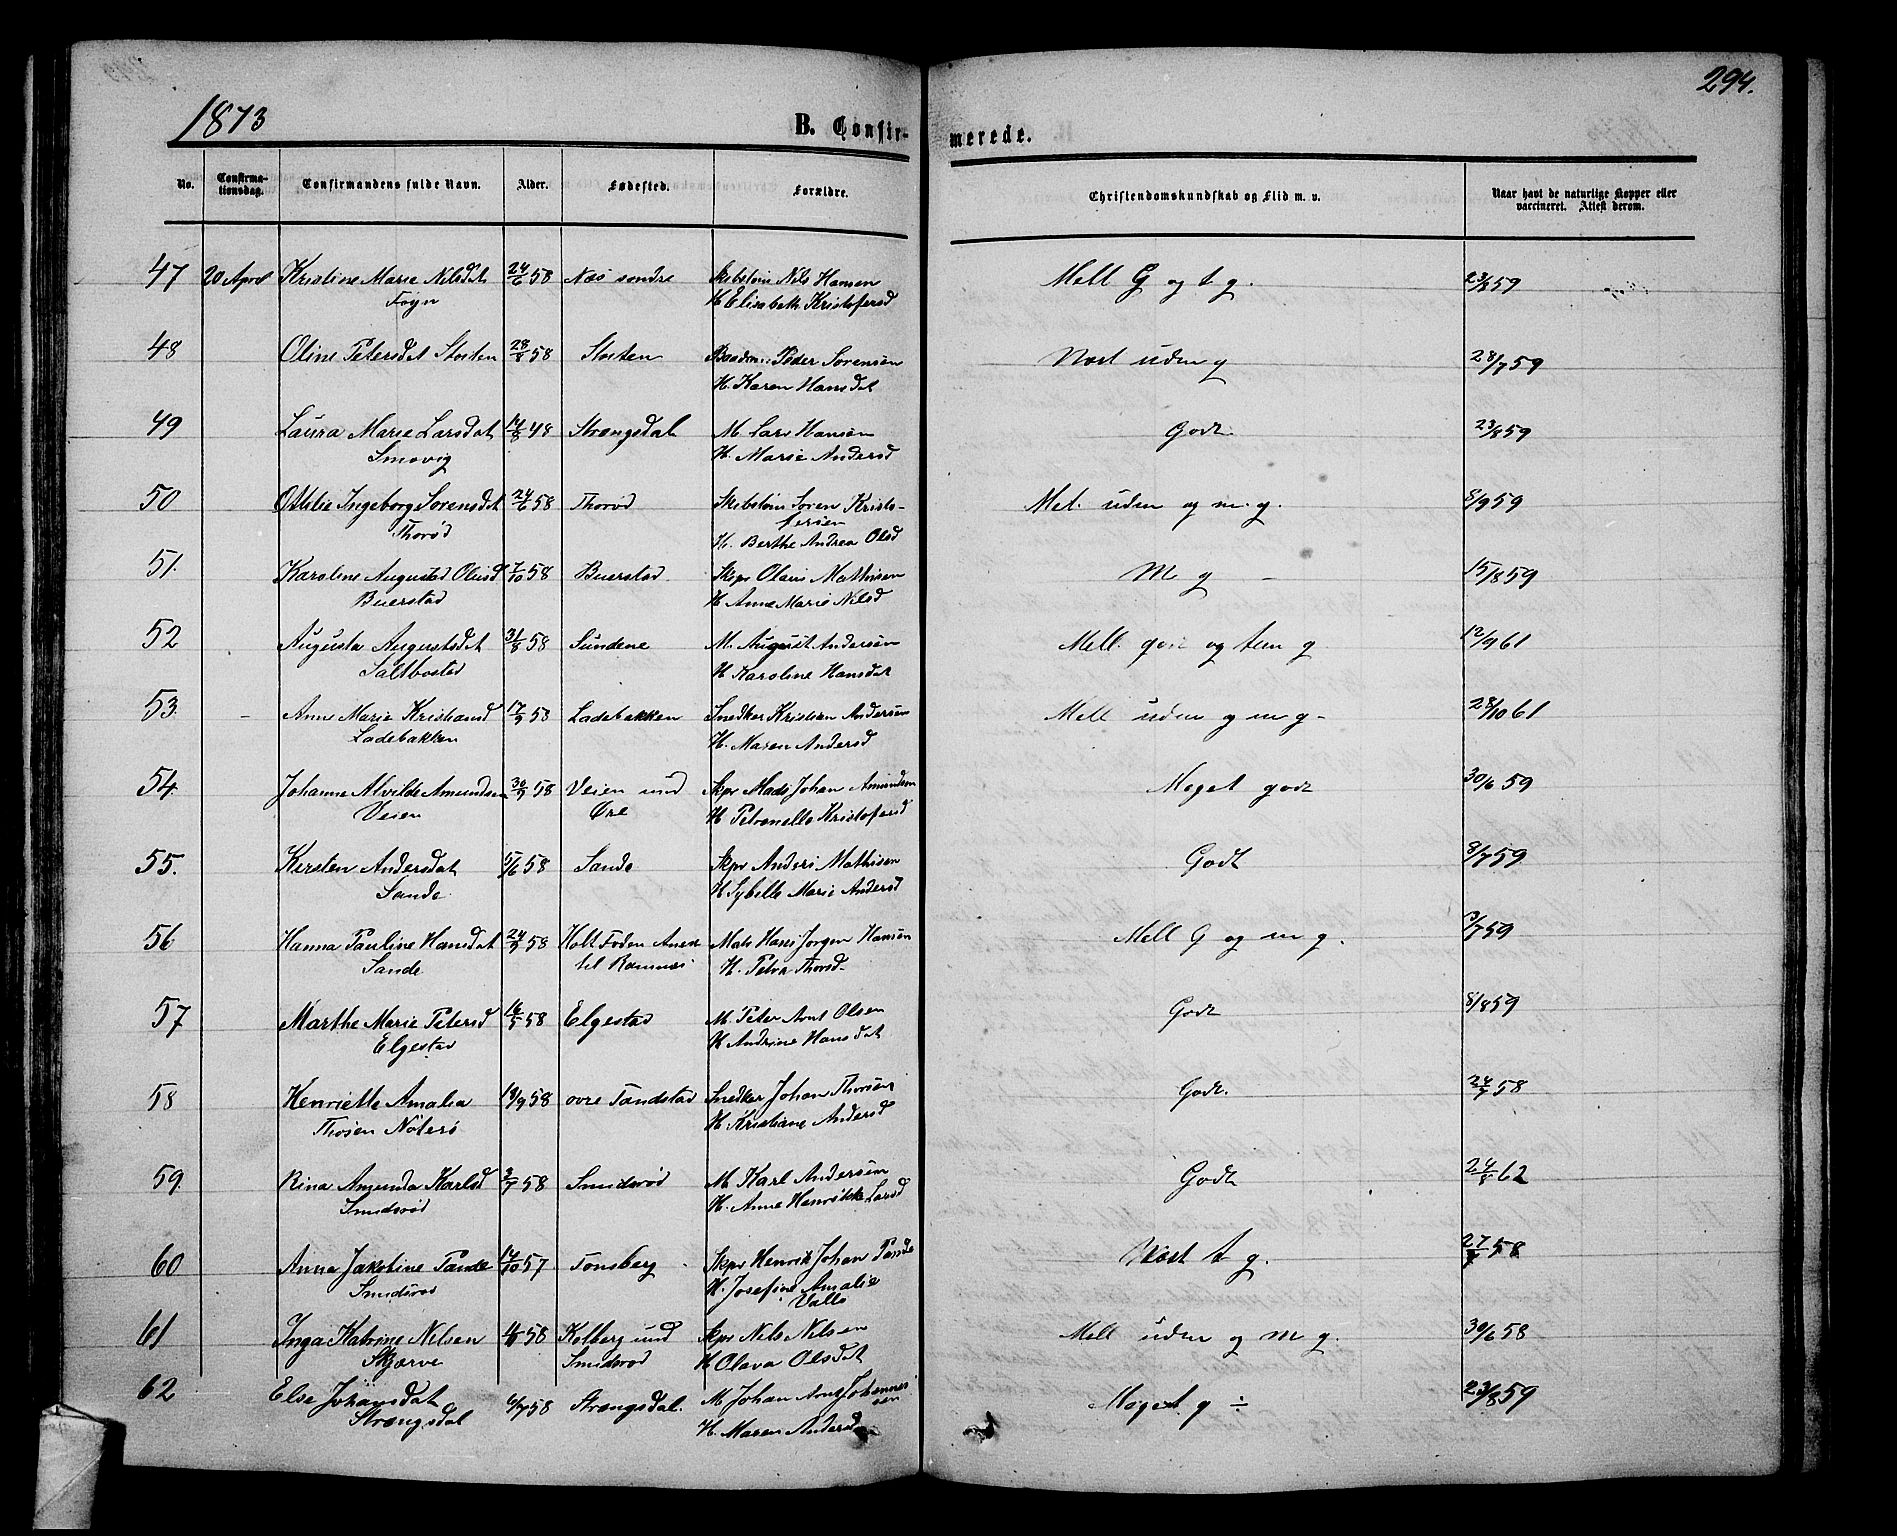 1873
B. Confir-
merede.
294.
No.
Confirma-
tionsdag.
Confirmandens fulde Navn.
Alder.
Fødested.
Forældre.
Christendomskundskab og Flid m. v.
Naar havt de naturlige Kopper eller
vaccineret. Attest derom.
47 20 April Kristine Marie Nilsdat 24/6 58 Næs søndre Skibstøm Nils Hansen Mell G og t g. 23/8 59
Foyn H Elisabeth Kristofersd
48 Oline Petersdat Stosten 28/8 58 Stosten Peder Sørensen Næst uden g 28/7 59
H. Karen Hansdat
49 Laura Marie Larsdat 14/8 48 Strængsdal M. Lars Hansen Godt 23/8 59
Smovig H. Marie Andersd
50 Ottilie Ingeborg Sørensdat 24/6 58 Thorød Skibstøm Søren Kristo- Mel. uden og m. g. 8/9 59
Thorød fersen
H. Berthe Andrea Olsd
51. Karoline Augusta Olausd 7/10 58 Buerstad Skpr Olaus Mathisen M g 15/8 59
Buerstad H Anne Marie Nilsd
52 Augusta Augustsdat 31/8 58 Sundene M. August Andersen Mell. godt og tem g 12/9 61
Saltbostad H Karoline Hansdat
53 Anne Marie Kristiansd 17/9 58 Ladebakken Snedker Kristian Andersen Mell uden g m g - 28/10 61
Ladebakken H. Maren Andersd
54 Johanne Alvilde Amundsen 30/9 58 Veien und Skpr Mads Johan Amundsen Meget godt 30/6 59
Veien Øre H Petronelle Kristofersd
55. Kirsten Andersdat 5/6 58 Sande Skpr Anders Mathisen Godt 8/7 59
Sande H Sybille Marie Andersd
56 Hanna Pauline Hansdat 24/9 58 Holt Foden Anex Mats Hans Jørgen Hansen Mell G og m g. 9/7 59
Sande til Ramnes H. Petra Thorsd
57 Marthe Marie Petersd 16/5 58 Elgestad M. Peter Arnt Olsen Godt 8/8 59
Elgestad H Andrine Hansdat
58 Henriette Amalia 19/9 58 øvre Tandstad Snedker Johan Thorsen Godt. 24/7 58
Thosen Nøterø H. Kristiane Andersd
59 Rina Amunda Karlsd 3/7 58 Smidsrød M Karl Andersen Godt 24/8 62
Smidsrød H. Anne Henrikke Larsd
60 Anna Jakobine Tande 14/10 57 Tønsberg Skpr Henrik Johan Tande Næst t g. 27/7 58
Smidsrød H. Josefine Amalie
Vallø
61 Inga Katrine Nilsen 58 Kolberg und Skpr Nils Nilsen Mell uden g m g. 30/6 58
Skjærve Smidsrød H Olava Olsdat
62 Else Johansdat 6/7 58 Strængsdal. M Johan Arnt Johannes Meget g ÷ 23/8 59
Strængsdal sen
H. Maren Andersd